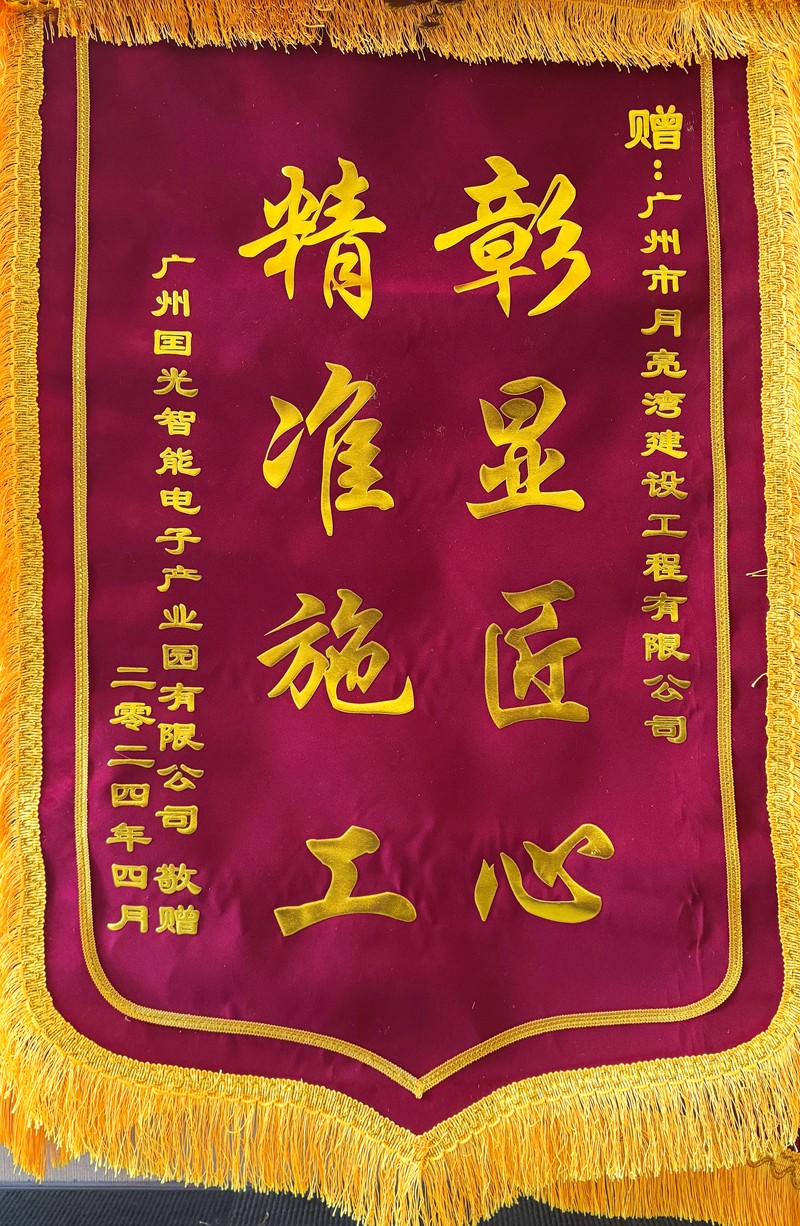 赠：广州市月亮湾建设工程有限公司
彰显匠心
精准施工
广州国光智能电子产业园有限公司 敬赠
二零二四年四月